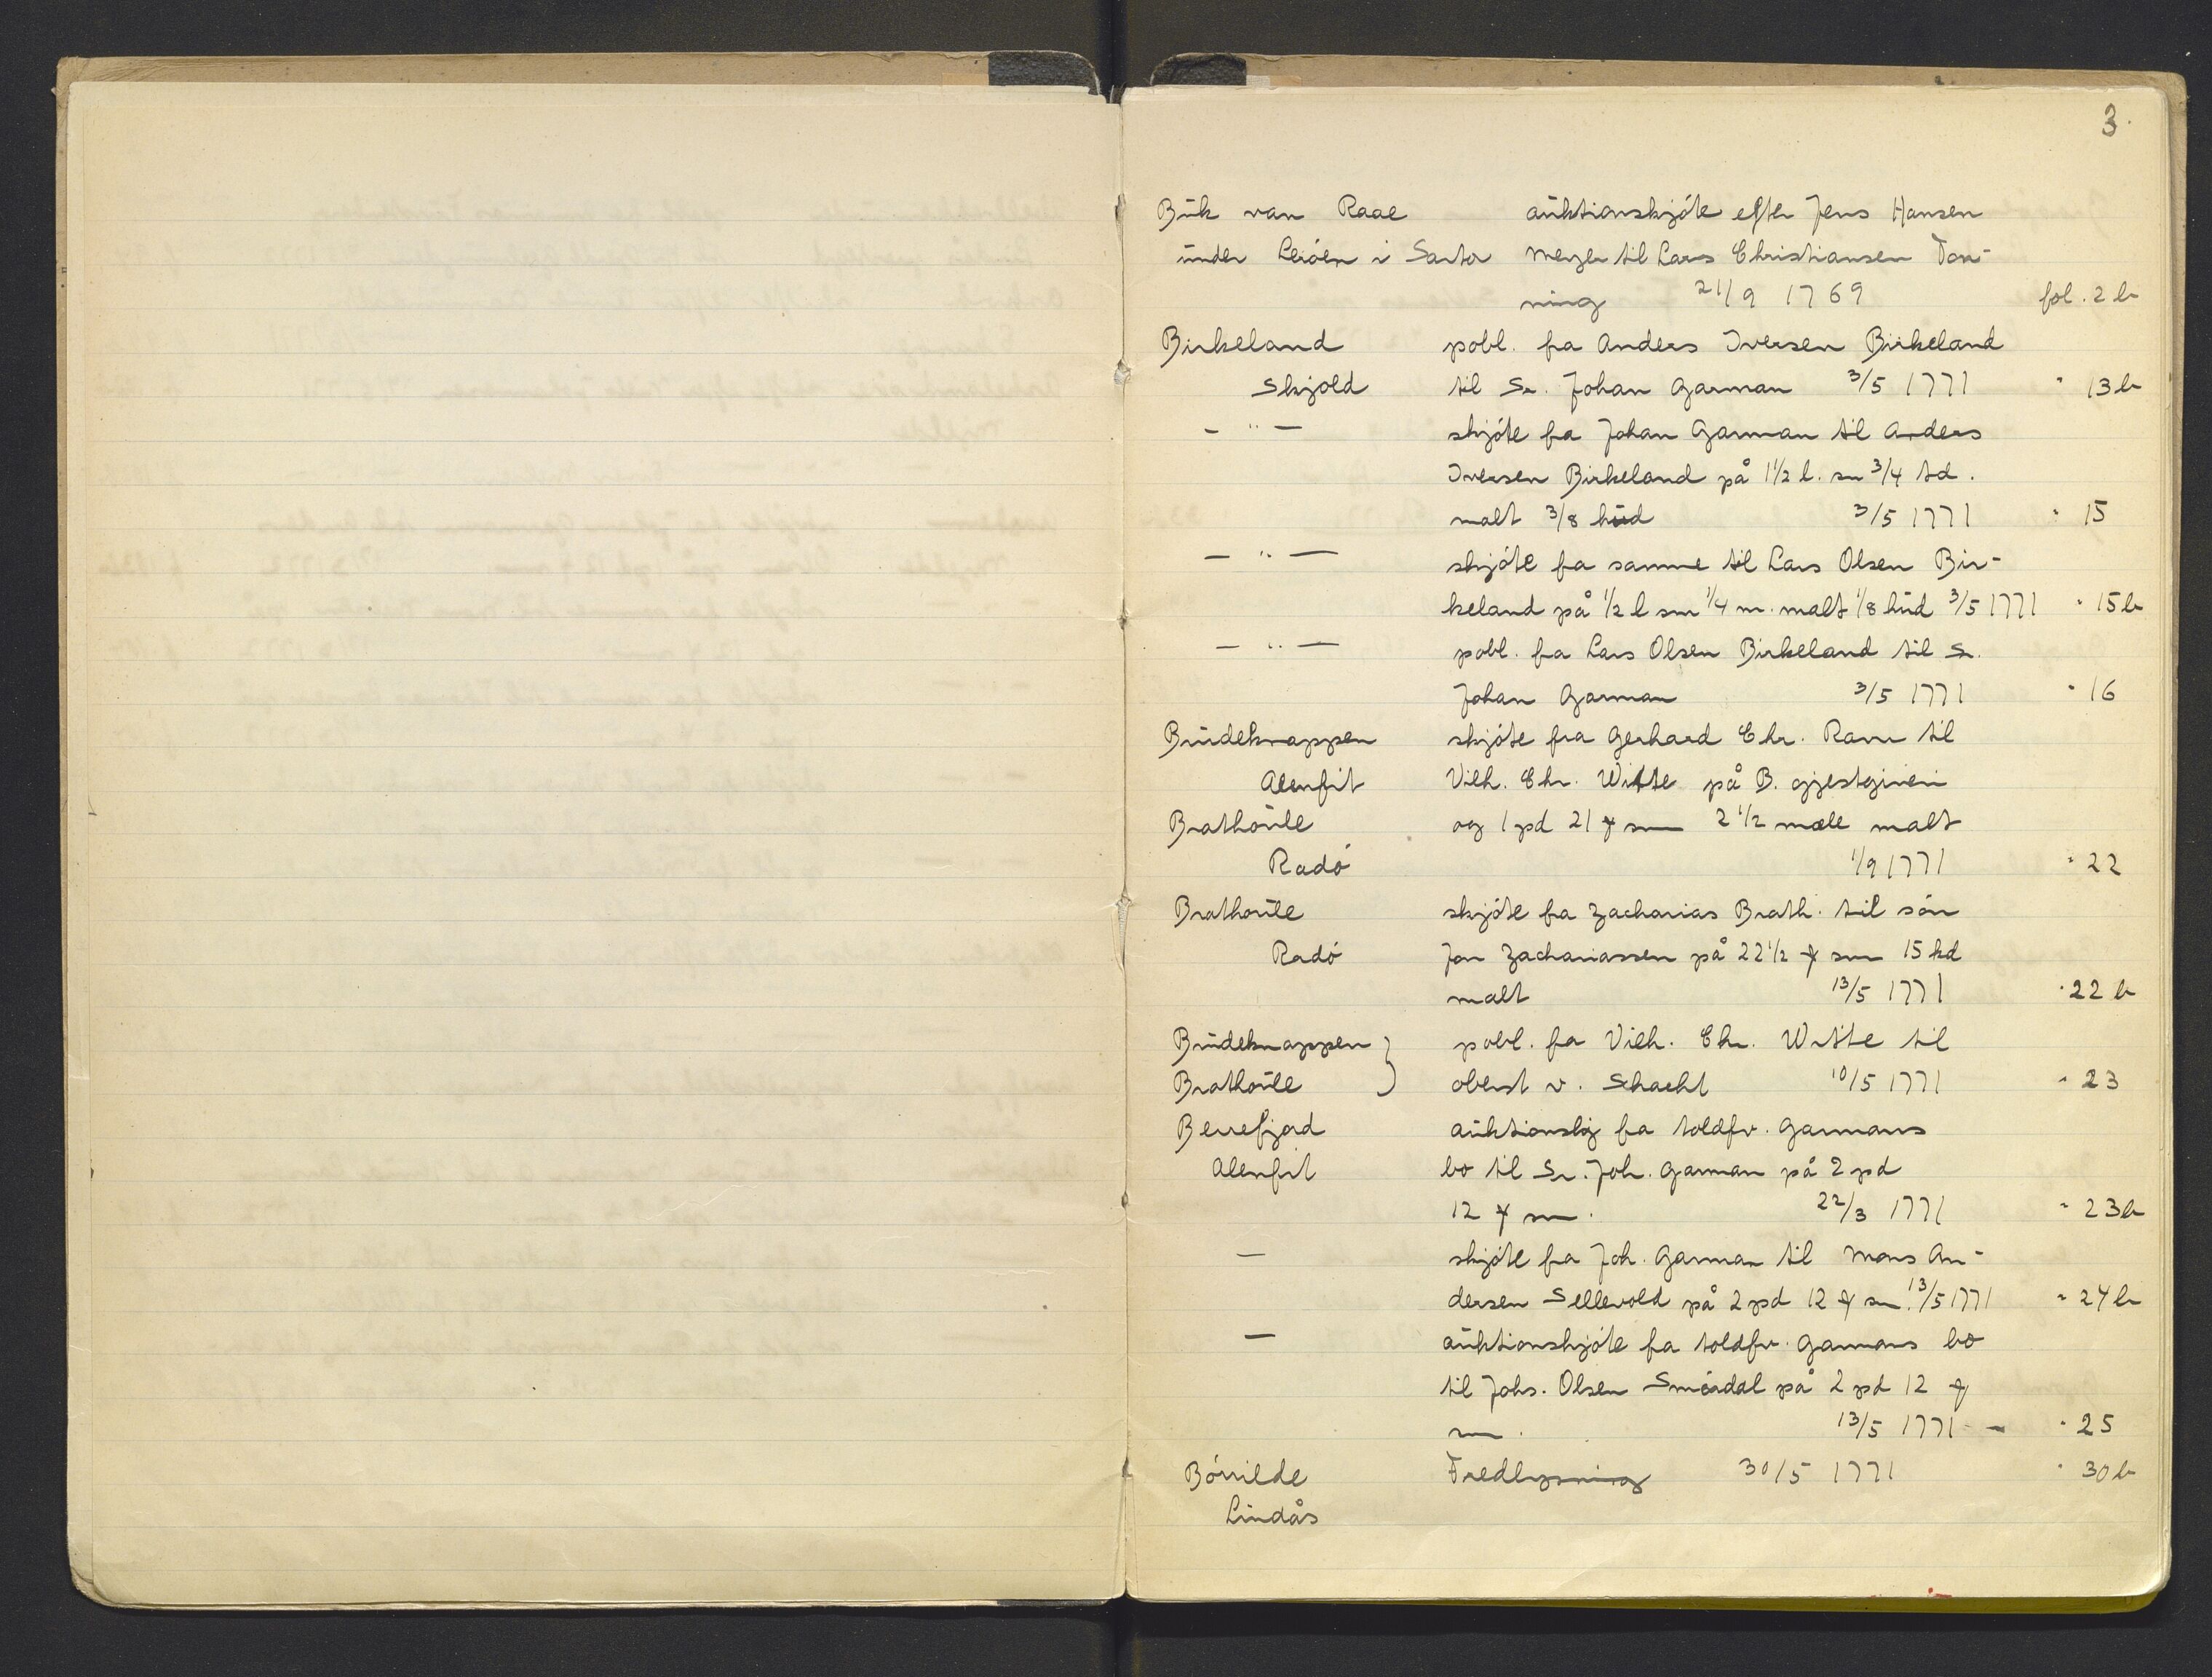 3.
Buk van Raae auktionskjöte efter Jens Hansen
under Leröen i Sartor Meyer til Lars Christiansen Ton-
ning 21/9 1769 fol. 2 b
Birkeland pobl. fra Anders Iversen Birkeland
Skjold til Sr. Johan Garman 3/5 1771 " 13 b
- " - skjöte fra Johan Garman til Anders
Iversen Birkeland på 1 1/2 l. sm 3/4 td.
malt 3/8 hud 3/5 1771 " 15
- " - skjöte fra samme til Lars Olsen Bir-
keland på 1/2 l sm 1/4 m. malt 1/8 hud 3/5 1771 " 15 b
- " - pobl. fra Lars Olsen Birkeland til Sr.
Johan Garman 3/5 1771 " 16
Brudeknappen skjöte fra Gerhard Chr. Ravn til
Alenfit Vilh. Chr. Witte på B. gjestgiveri
Brathoule og 1 pd 21 ꝑ sm 2 1/2 mæle malt
Radö 1/9 1771 " 22
Brathoule skjöte fra Zacharias Brath. til sön
Radö Jon Zachariassen på 22 1/2 ꝑ sm 15 kd
malt 13/5 1771 " 22 b
Brudeknappen } pobl. fra Vilh. Chr. Witte til
Brathoule oberst v. Schacht 10/5 1771 " 23
Berrefjord auktionskj fra toldfv. Garmans
Alenfit bo til Sr. Joh. Garman på 2 pd
12 ꝑ sm. 22/3 1771 " 23 b
- skjöte fra Joh. Garman til Mons An-
dersen Sellevold på 2 pd 12 ꝑ sm. 13/5 1771 " 24 b
- auktionskjöte fra toldfv. Garmans bo
til Johs. Olsen Smördal på 2 pd 12 ꝑ
sm. 13/5 1771 - " 25
Börrilde Fredlysning 30/5 1771 " 30 b
Lindås